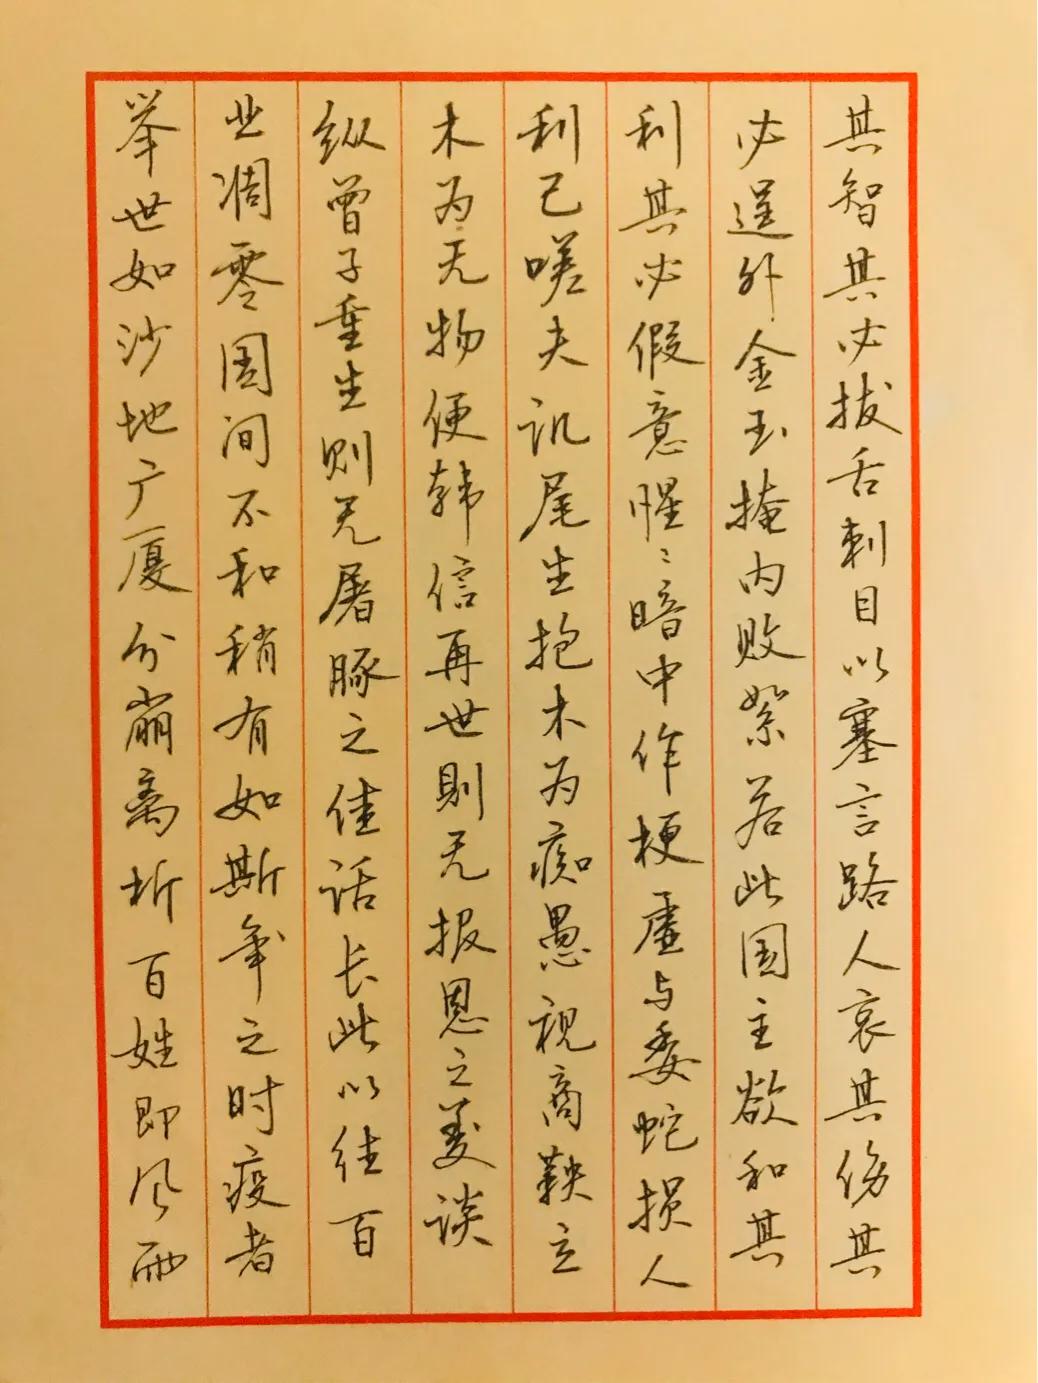 其智其必拔舌刺目以塞言路人哀其傷其
必逞外金玉掩内败絮若此国主欲和其
利其必假意惺〻暗中作梗虚与委蛇损人
利己嗟夫讥尾生抱木为痴愚视商鞅立
木为无物便韩信再世則无报恩之美谈
纵曾子重生则无屠豚之佳话长此以往百
业凋零国间不和稍有如斯年之时疫者
举世如沙地广厦分崩离析百姓即风雨